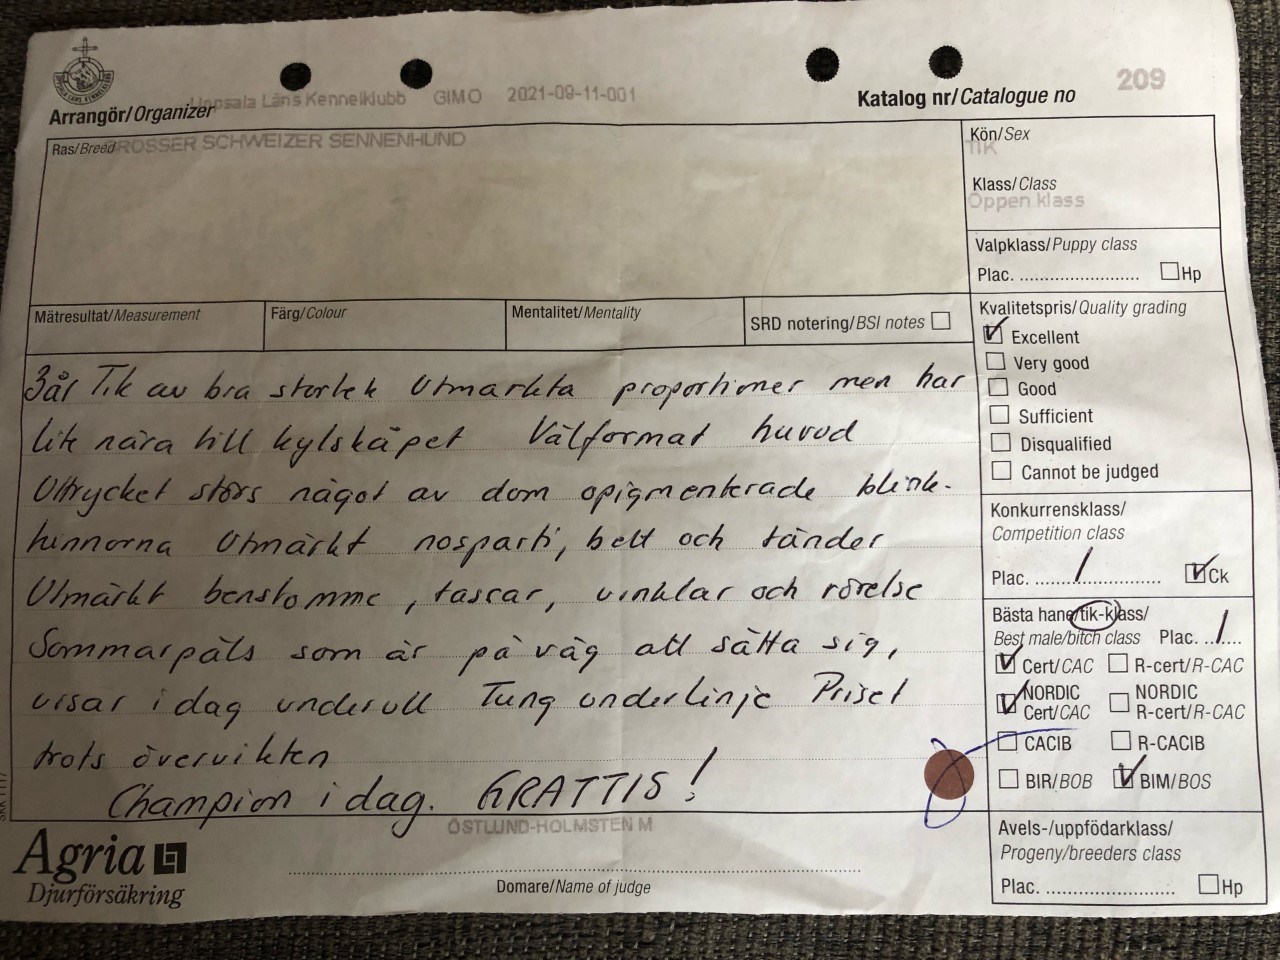 Uppsala Läns Kennelklubb GIMO 2021-09-11-001
Arrangör/Organizer
Katalog nr/Catalogue no 209
Ras/Breed GROSSER SCHWEIZER SENNENHUND
Kön/Sex
TIK
Klass/Class
Öppen klass
Valpklass/Puppy class
Plac. ........................ Hp
Mätresultat/Measurement
Färg/Colour
Mentalitet/Mentality
SRD notering/BSI notes
Kvalitetspris/Quality grading
Excellent
Very good
Good
Sufficient
Disqualified
Cannot be judged
3år Tik av bra storlek Utmarkta proportioner men har
lite nära till kylskåpet Välformat huvud
Uttrycket störs något av dom opigmenterade blink-
hinnorna Utmärkt nosparti, bett och tänder
Utmärkt benstomme, tassar, vinklar och rörelse
Sommarpäls som är på väg att sätta sig,
visar idag underull Tung underlinje Priset
trots övervikten
Champion idag. GRATTIS!
Konkurrensklass/
Competition class
Plac. ....1.... Ck
Bästa hane/tik-klass/
Best male/bitch class Plac. ..1....
Cert/CAC R-cert/R-CAC
NORDIC Cert/CAC NORDIC R-cert/R-CAC
CACIB R-CACIB
BIR/BOB BIM/BOS
Avels-/uppfödarklass/
Progeny/breeders class
Plac. ........................ Hp
Agria
Djurförsäkring
ÖSTLUND-HOLMSTEN M
Domare/Name of judge